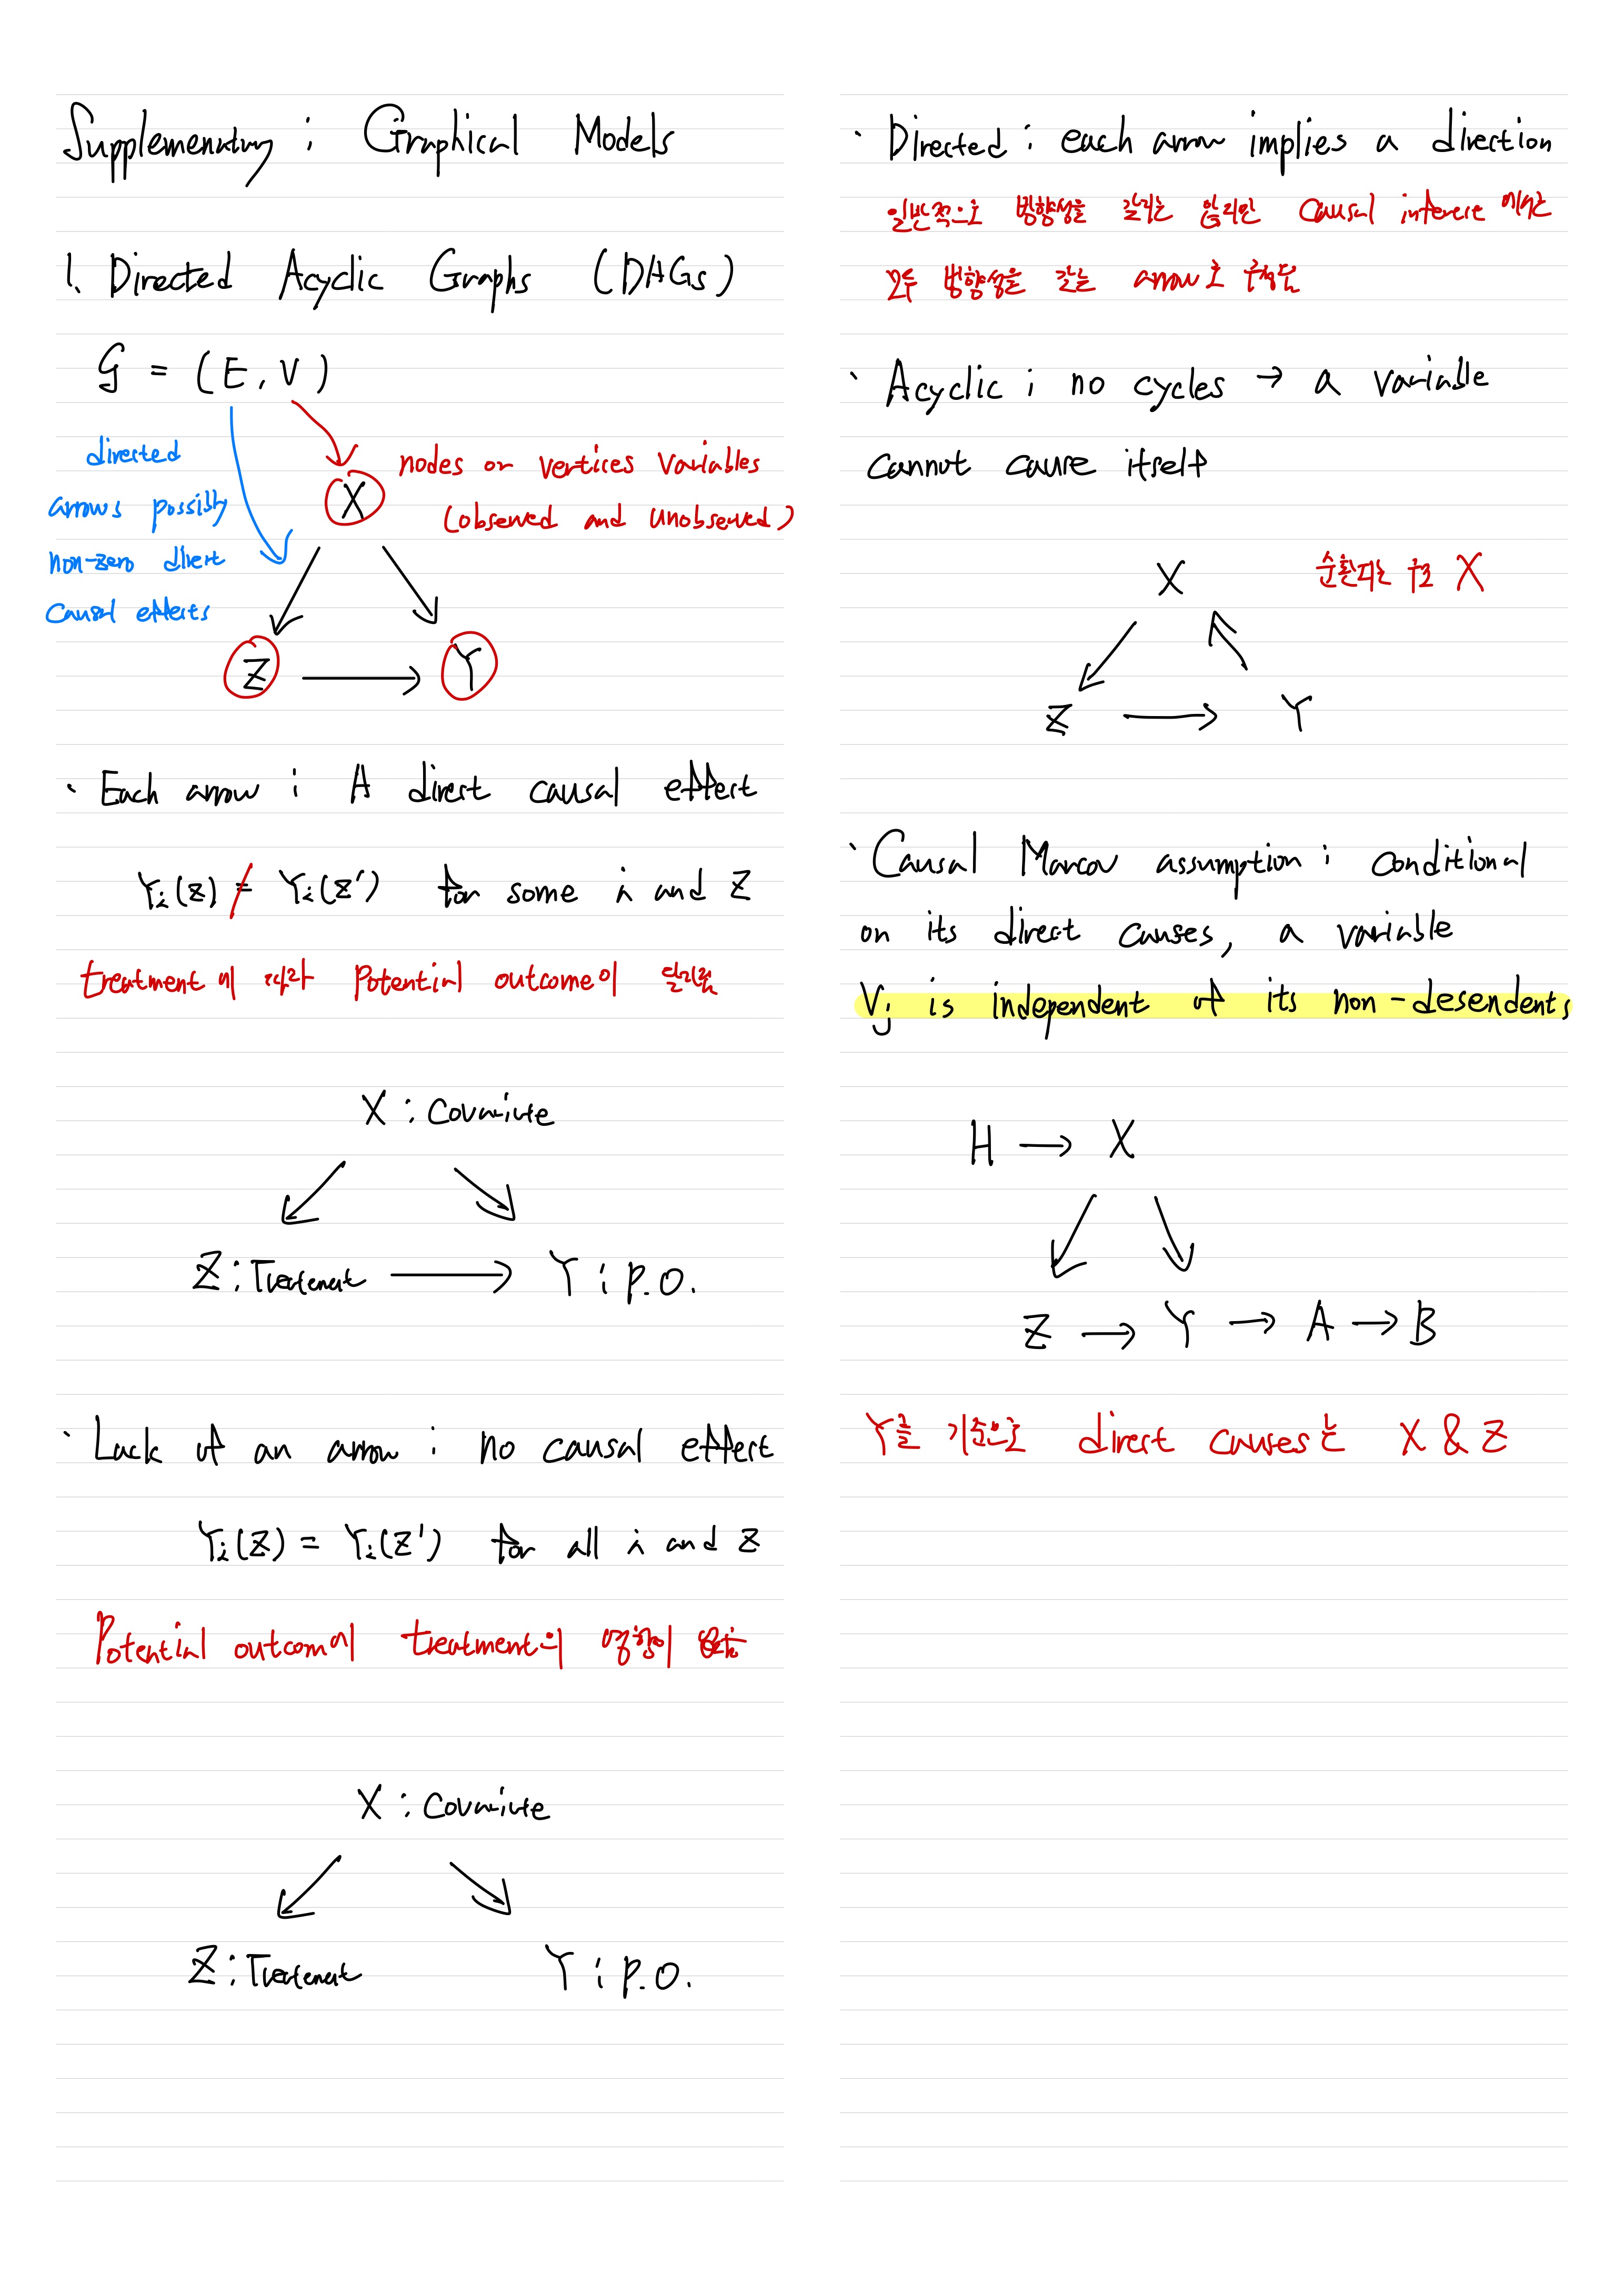 Supplementary : Graphical Models
1. Directed Acyclic Graphs (DAGs)
G = (E, V)
directed
arrows possibly
non-zero direct
causal effects
nodes or vertices variables
(observed and unobserved)
X
Z → Y
· Each arrow : A direct causal effect
Yi(z) ≠ Yi(z') for some i and z
treatment에 따라 potential outcome이 달라짐
X : Covariate
Z : Treatment → Y : P.O.
· Lack of an arrow : no causal effect
Yi(z) = Yi(z') for all i and z
Potential outcome이 treatment의 영향이
X : Covariate
Z : Treatment Y : P.O.
· Directed : each arrow implies a direction
일반적으로 방향성을 갖지는 않지만 Causal 에서는
모두 방향성을 갖는 arrow로 구성됨
· Acyclic : no cycles → a variable
cannot cause itself
X
순환되는 구조 X
Z → Y
· Causal Marcov assumption : conditional
on its direct causes, a variable
Vj is independent of its non-desendents
H → X
Z → Y → A → B
Y를 기준으로 direct causes는 X & Z